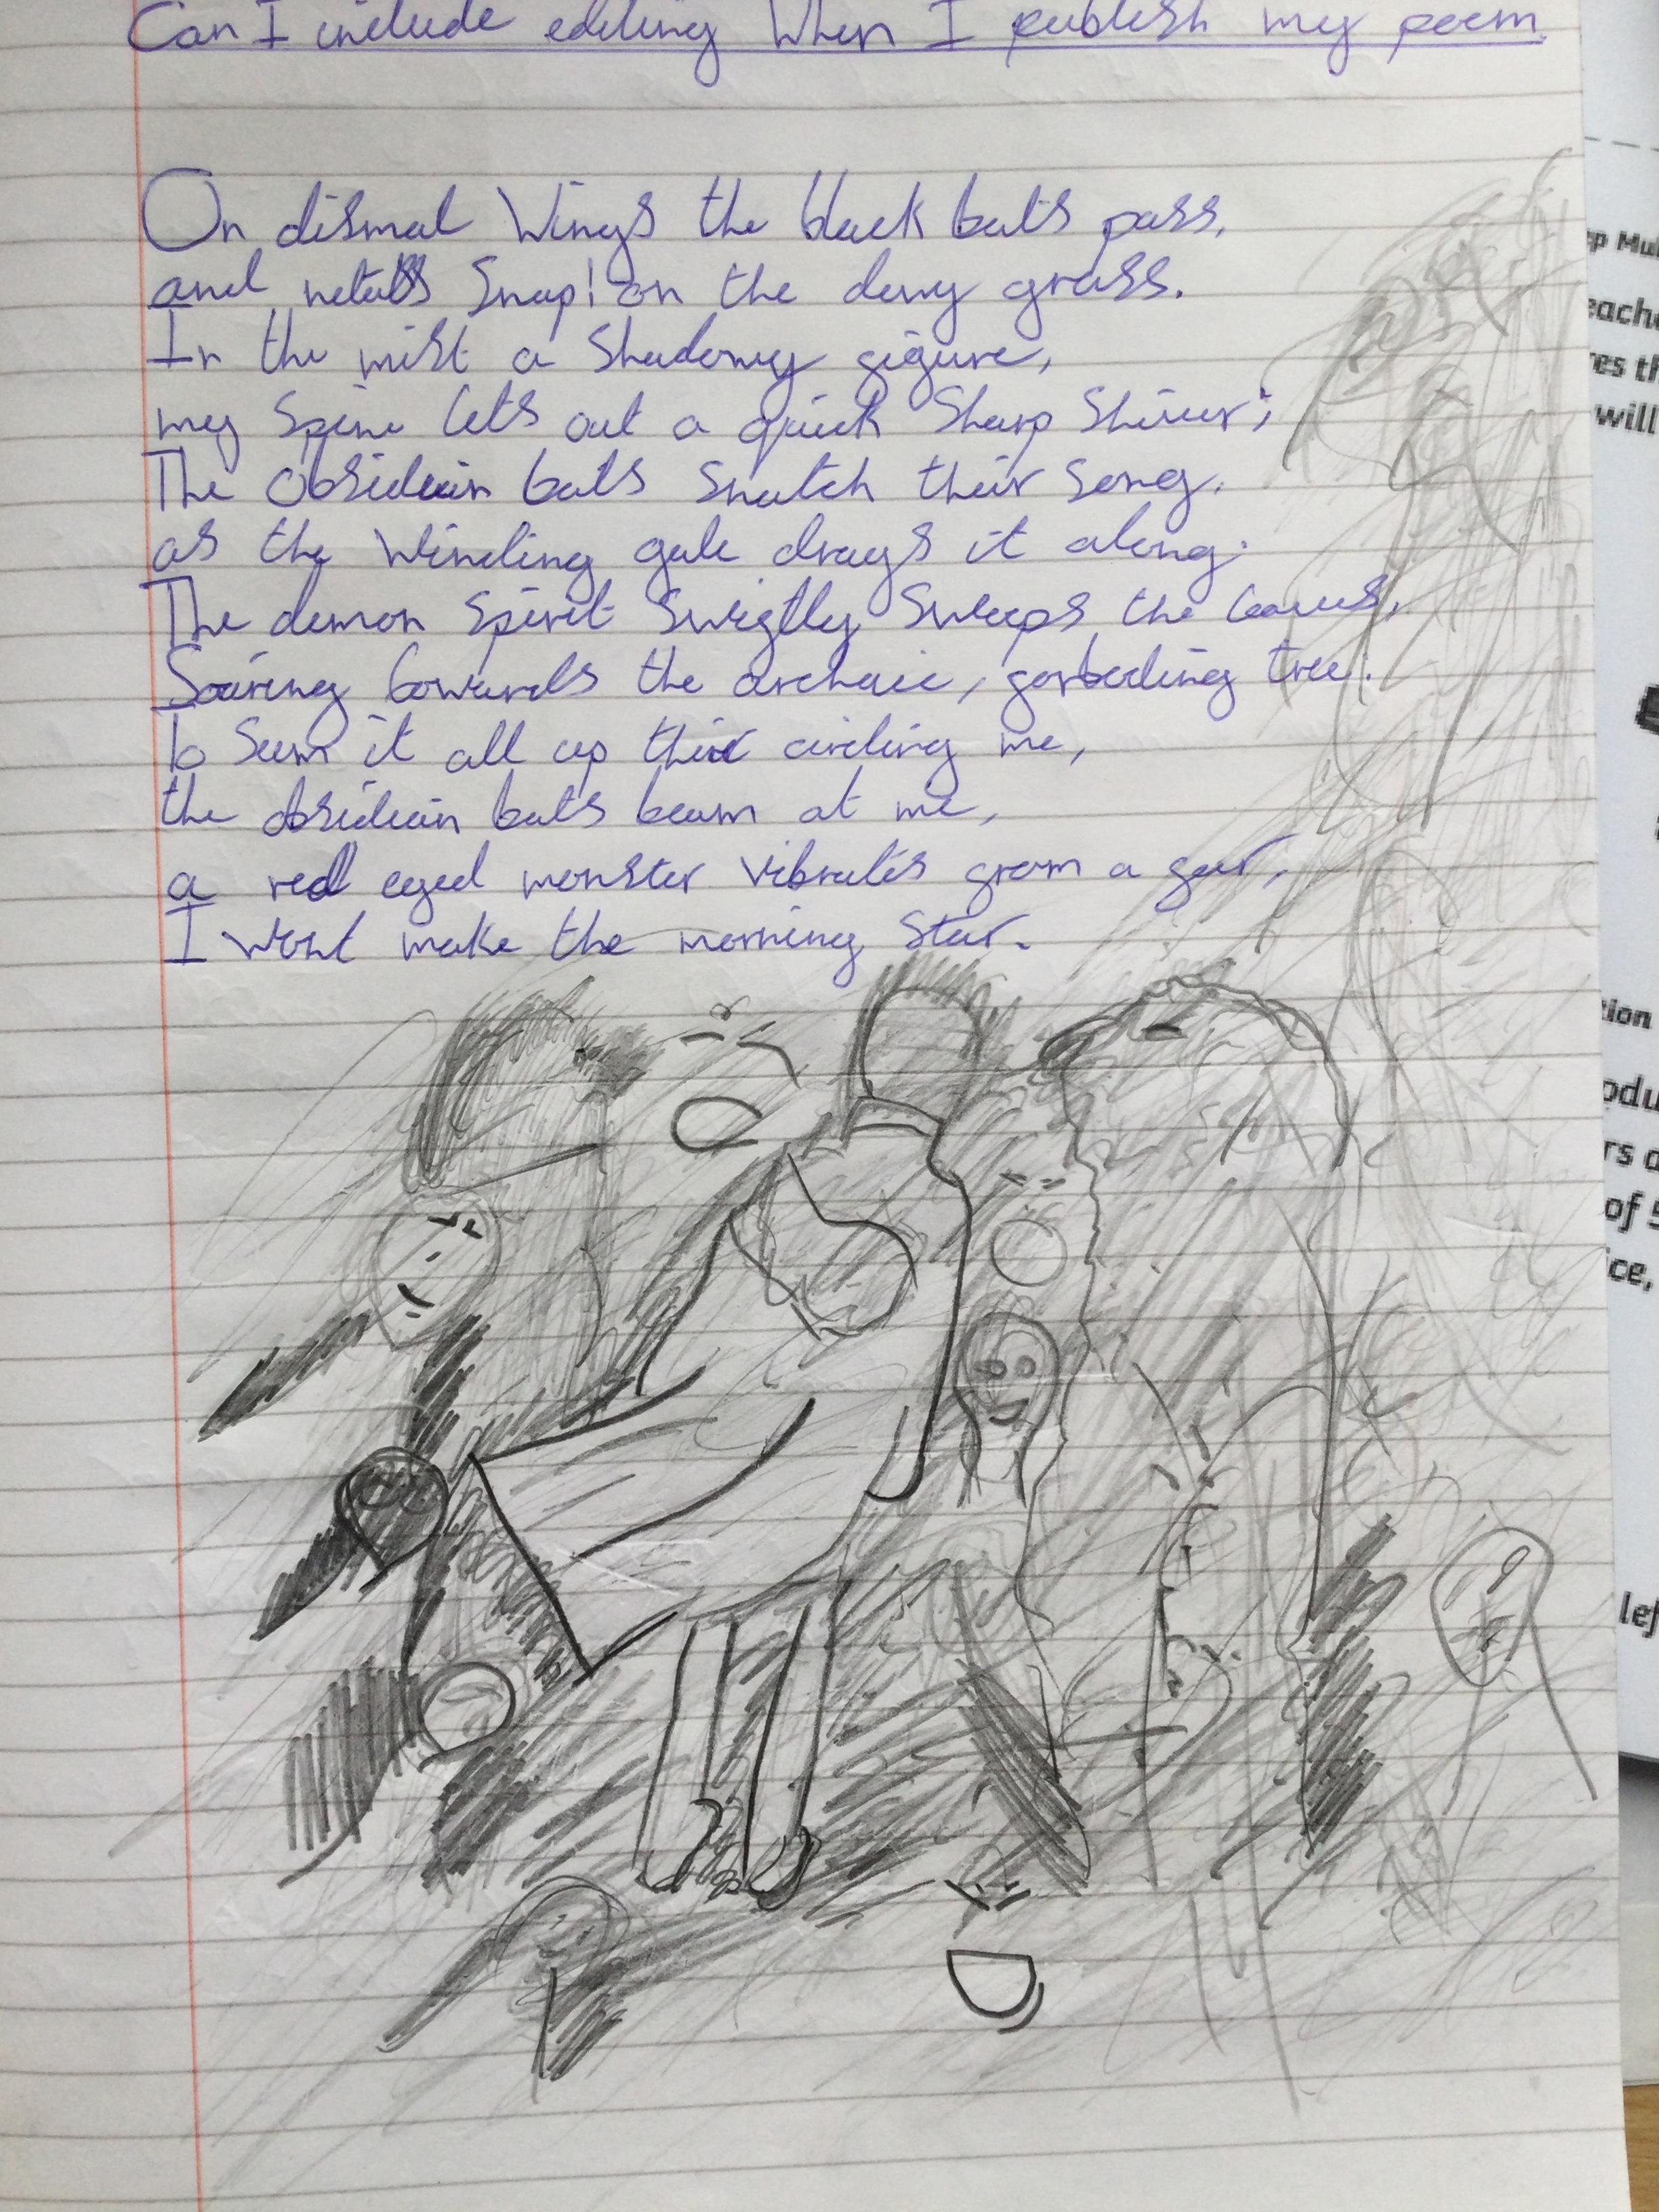 Can I include editing When I publish my poem
On dismal Wings the black bats pass,
and Snap! on the dewy grass.
In the mist a Shadowy figure,
my Spine lets out a quick Sharp Shiver;
The Obsidian bats Snatch their Song,
as the Winding gale drags it along.
The demon Spirit Swiftly Sweeps the leaves,
Soaring towards the archaic, forboding tree.
to Sum it all up circling me,
the obsidian bats beam at me,
a red eyed monster vibrates from a far,
I wont make the morning Star.
will
tion
of 5
ice,